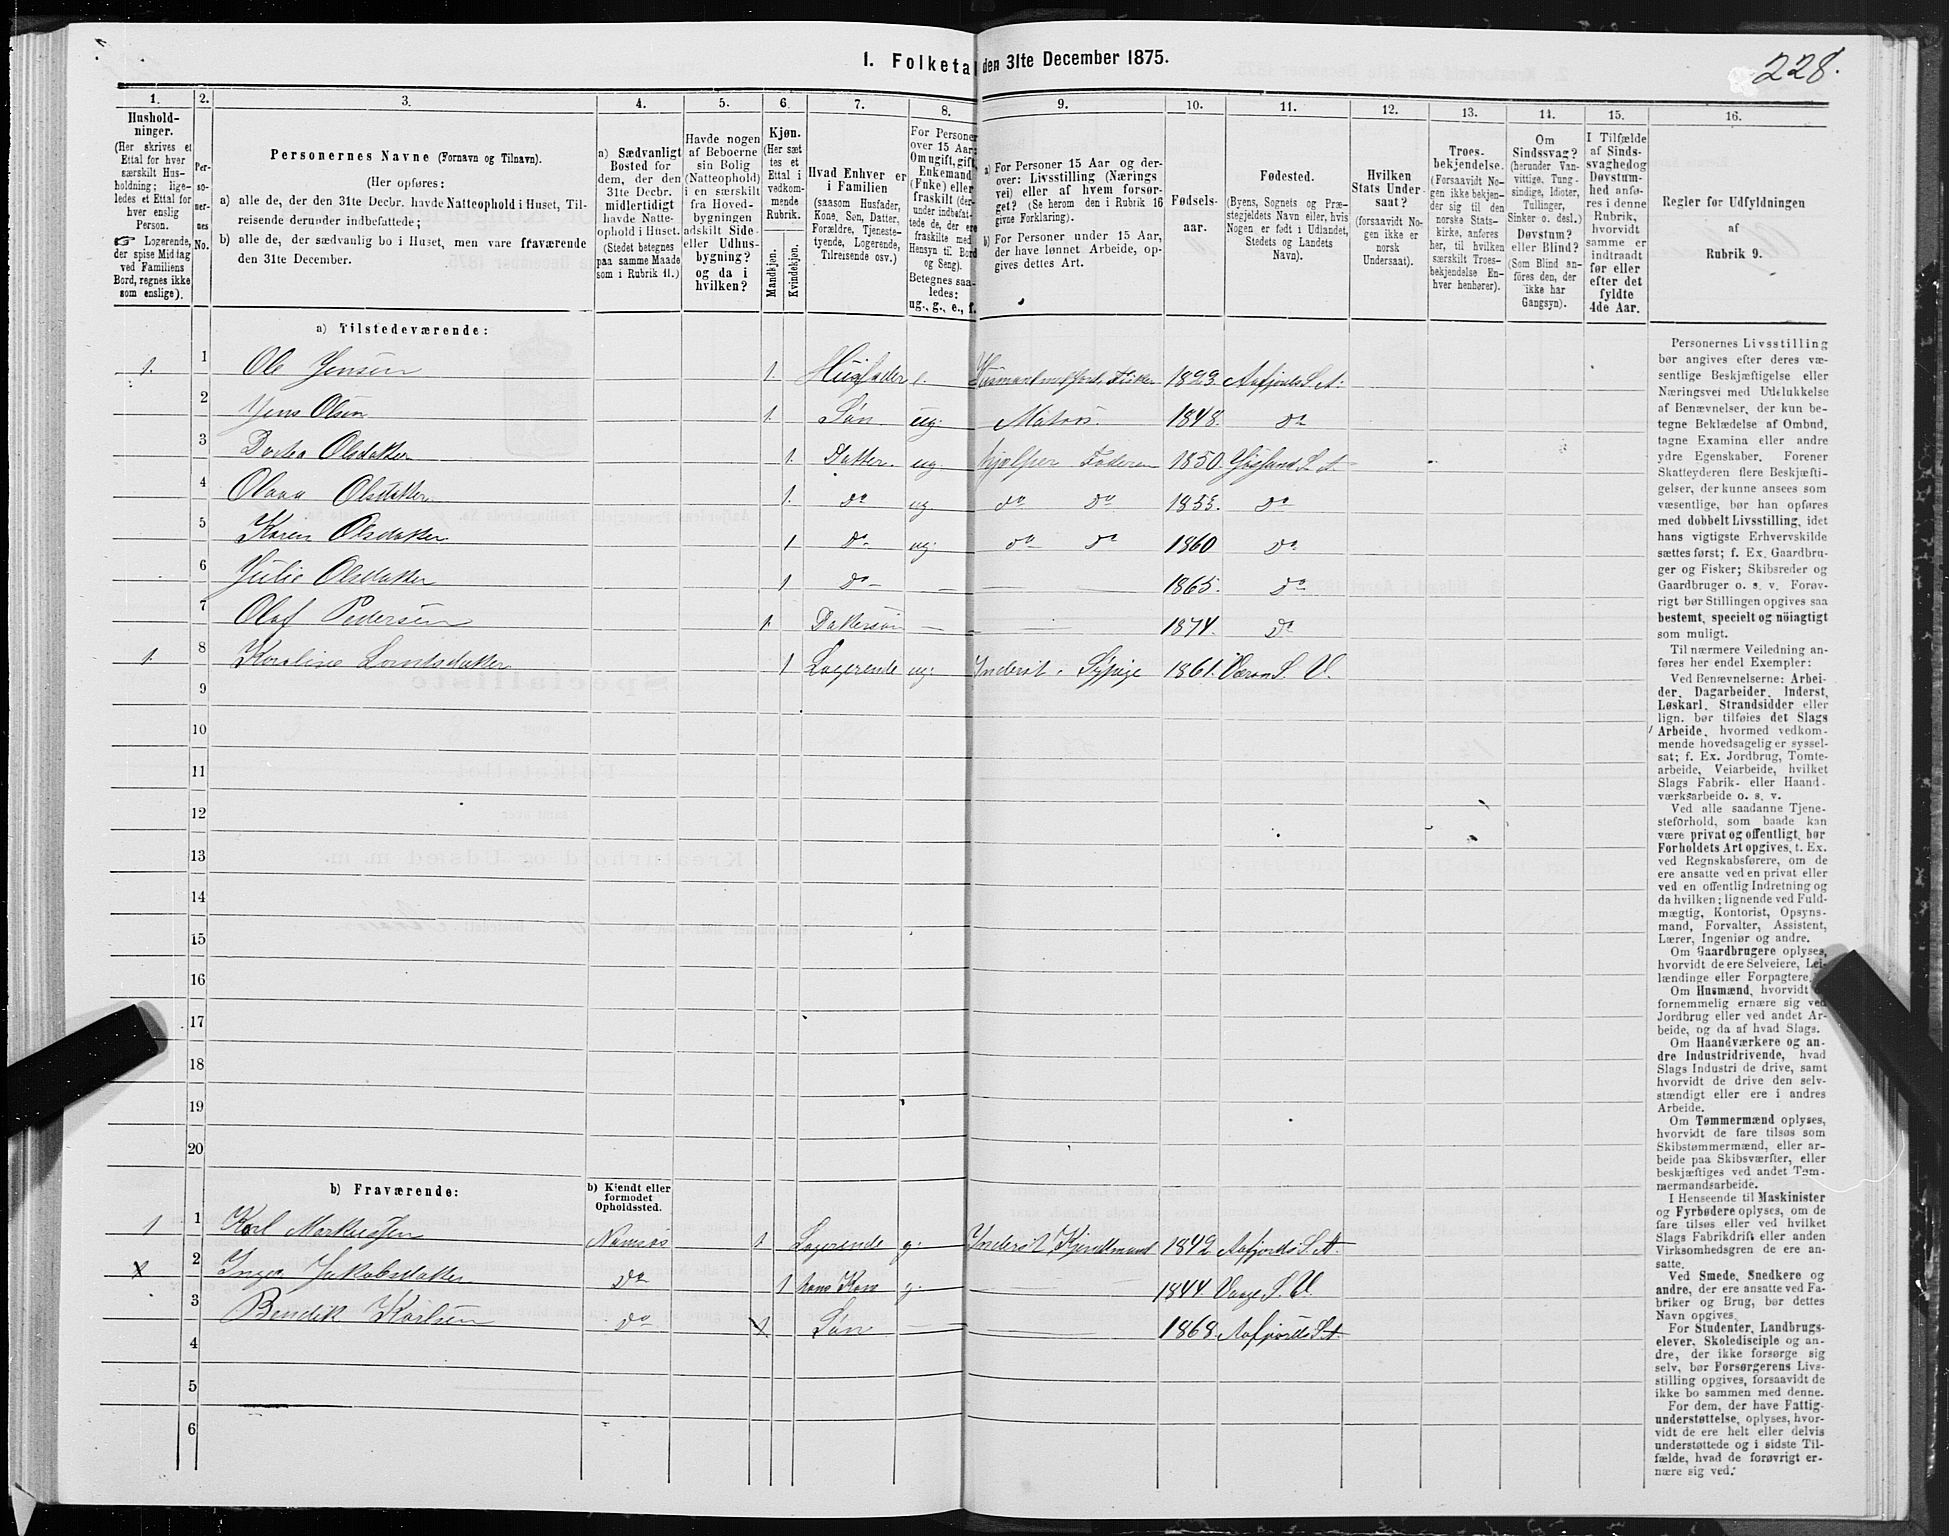 1. Folketal den 31te December 1875.
228.
1. 2. 3. 4. 5. 6. 7. 8. 9. 10. 11. 12. 13. 14. 15. 16.
Hushold-
ninger.
(Her skrives et
Ettal for hver
særskilt Hus-
holdning; lige-
ledes et Ettal for
hver enslig
Person.
☞ Logerende,
der spise Middag
ved Familiens
Bord, regnes ikke
som enslige).
Per-
so-
ner-
nes
No.
Personernes Navne (Fornavn og Tilnavn).
(Her opføres:
a) alle de, der den 31te Decbr. havde Natteophold i Huset, Til-
reisende derunder indbefattede;
b) alle de, der sædvanlig bo i Huset, men vare fraværende
den 31te December.
a) Sædvanligt
Bosted for
dem, der den
31te Decbr.
midlertidigt
havde Natte-
ophold i Huset.
(Stedet betegnes
paa samme Maade
som i Rubrik 11.)
Havde nogen
af Beboerne
sin Bolig
(Natteophold)
i en særskilt
fra Hoved-
bygningen
adskilt Side-
eller Udhus-
bygning?
og da i
hvilken?
Kjøn.
(Her sæt
tes et
Ettal i
vedkom-
mende
Rubrik.
Mandkjøn.
Kvindekjøn.
Hvad Enhver er
i Familien
(saasom Husfader,
Kone, Søn, Datter,
Forældre, Tjeneste-
tyende, Logerende,
Tilreisende osv.)
For Personer
over 15 Aar:
Om ugift, gift,
Enkemand
(Enke) eller
fraskilt (der-
under indbefat-
tede de, der ere
fraskilte med
Hensyn til Bord
og Seng).
Betegnes saa-
ledes:
ug., g., e., f.
a) For Personer 15 Aar og der-
over: Livsstilling (Nærings
vei) eller af hvem forsør-
get? (Se herom den i Rubrik 16
givne Forklaring).
b) For Personer under 15 Aar,
der have lønnet Arbeide, op-
gives dettes Art.
Fødsels-
aar.
Fødested.
(Byens, Sognets og Præ-
stegjeldets Navn eller, hvis
Nogen er født i Udlandet,
Stedets og Landets
Navn).
Hvilken
Stats Under-
saat?
(forsaavidt No-
gen ikke er
norsk
Undersaat).
Troes-
bekjendelse.
(Forsaavidt No-
gen ikke bekjen-
der sig til den
norske Stats-
kirke, anføres
her, til hvilken
særskilt Troes-
bekjendelse En-
hver henhører).
Om
Sindssvag?
(herunder Van-
vittige, Tung-
sindige, Idioter,
Tullinger,
Sinker o. desl.)
Døvstum?
eller Blind?
(Som Blind an-
føres den, der
ikke har
Gangsyn).
I Tilfælde
af Sinds-
svaghed og
Døvstum-
hed anfø-
res i denne
Rubrik,
hvorvidt
samme er
indtraadt
før eller
efter det
fyldte
4de Aar.
Regler for Udfyldningen
af
Rubrik 9.
a) Tilstedeværende:
1. 1 Ole Jensen 1. Husfader e. Husmand m/ Jord, Fisker 1823. Aafjords S. A.
2 Jens Olsen 1. Søn ug. Matros. 1848. do
3 Dortea Olsdatter 1. Datter. ug. hjælper Faderen 1850. Jøssund S. A
4 Olava Olsdatter 1. do ug do do 1855. Do
5 Karen Olsdatter 1 Do ug. do do 1860 Do
6 Julie Olsdatter 1 Do — — — 1865. Do
7 Olaf Pedersen 1. Dattersøn — — 1874. Do
1. 8 Karoline Lorntsdatter 1 Logerende ug: Inderst. Sypige 1861.Væran S. V.
9
10
11
12
13
14
15
16
17
18
19
20
b) Fraværende:
b) Kjendt eller
formodet
Opholdssted.
1 1 Karl Markussen Namsos 1. Logerende g. Inderst Kjendtmand 1842 Aafjords S. A.
2 Inger Jakobsdatter do 1 hans Kone g. — 1844. S. V.
3 Bendik Karlsen do 1 Søn — — 1868. Aafjords S. A.
4
5
6
Personernes Livsstilling
bør angives efter deres væ-
sentlige Beskjæftigelse eller
Næringsvei med Udelukkelse
af Benævnelser, der kun be-
tegne Beklædelse af Ombud,
tagne Examina eller andre
ydre Egenskaber. Forener
Skatteyderen flere Beskjæfti-
gelser, der kunne ansees som
væsentlige, bør han opføres
med dobbelt Livsstilling, idet
hans vigtigste Erhvervskilde
sættes først; f. Ex. Gaardbru-
ger og Fisker; Skibsreder og
Gaardbruger o. s. v. Forøv-
rigt bør Stillingen opgives saa
bestemt, specielt og nöiagtigt
som muligt.
Til nærmere Veiledning an-
føres her endel Exempler:
Ved Benævnelserne: Arbei-
der, Dagarbeider, Inderst,
Løskarl, Strandsidder eller
lign. bør tilføies det Slags
Arbeide, hvormed vedkom-
mende hovedsagelig er syssel-
sat; f. Ex. Jordbrug, Tomte-
arbeide, Veiarbeide, hvilket
Slags Fabrik- eller Haand-
værksarbeide o. s. v.
Ved alle saadanne Tjene-
steforhold, som baade kan
være privat og offentligt, bør
Forholdets Art opgives, t. Ex.
ved Regnskabsførere, om de
ere ansatte ved en privat eller
ved en offentlig Indretning og
da hvilken; lignende ved Fuld-
mægtig, Kontorist, Opsyns-
mand, Forvalter, Assistent,
Lærer, Ingeniør og andre.
Om Gaardbrugere oplyses,
hvorvidt de ere Selveiere, Lei-
lændinge eller Forpagtere.
Om Husmænd, hvorvidt de
fornemmelig ernære sig ved
Jordbrug eller ved andet Ar-
beide, og da af hvad Slags.
Om Haandværkere og an-
dre Industridrivende, hvad
Slags Industri de drive, samt
hvorvidt de drive den selv-
stændigt eller ere i andres
Arbeide.
Om Tømmermænd oplyses,
hvorvidt de fare tilsøs som
Skibstømmermænd, eller ar-
beide paa Skibsværfter, eller
beskjæftiges ved andet Tøm-
mermandsarbeide.
I Henseende til Maskinister
og Fyrbødere oplyses, om de
fare tilsøs eller ved hvilket
Slags Fabrikdrift eller anden
Virksomhedsgren de ere an-
satte.
Ved Smede, Snedkere og
andre, der ere ansatte ved Fa-
briker og Brug, bør dettes
Navn opgives.
For Studenter, Landbrugs-
elever, Skoledisciple og an-
dre, der ikke forsørge sig
selv, bør Forsørgerens Livs-
stilling opgives, forsaavidt de
ikke bo sammen med denne.
For dem, der have Fattig-
understøttelse, oplyses, hvor-
vidt de ere helt eller delvis
understøttede og i sidste Til-
fælde, hvad de forøvrigt er-
nære sig ved.